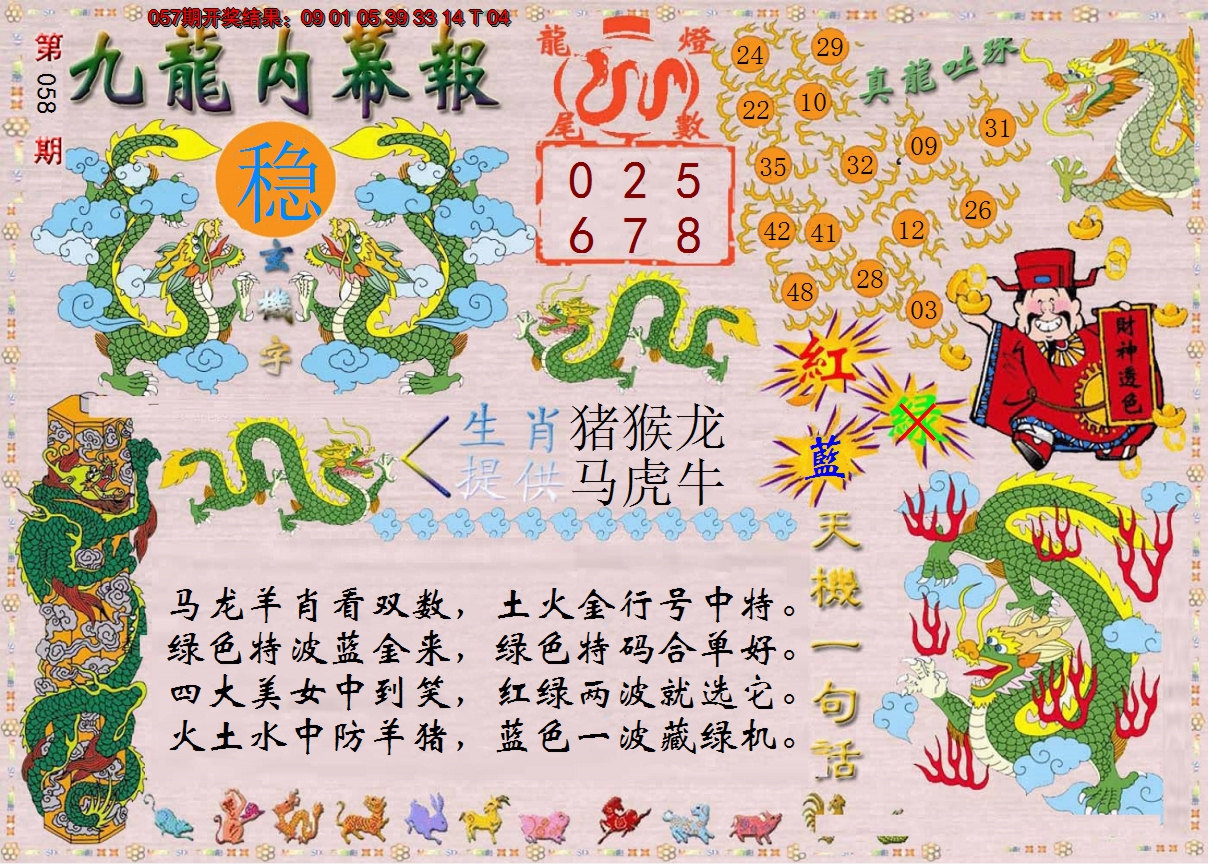 057期开奖结果：09 01 05 39 33 14 T 04
第058期
九龍内幕報
稳
玄機字
龍燈
尾數
0 2 5
6 7 8
真龍吐珠
24 29
22 10
35 32 09 31
42 41 12 26
48 28 03
財神透色
紅
绿
藍
生肖 猪猴龙
提供 马虎牛
天機一句話
马龙羊肖看双数，土火金行号中特。
绿色特波蓝金来，绿色特码合单好。
四大美女中到笑，红绿两波就选它。
火土水中防羊猪，蓝色一波藏绿机。